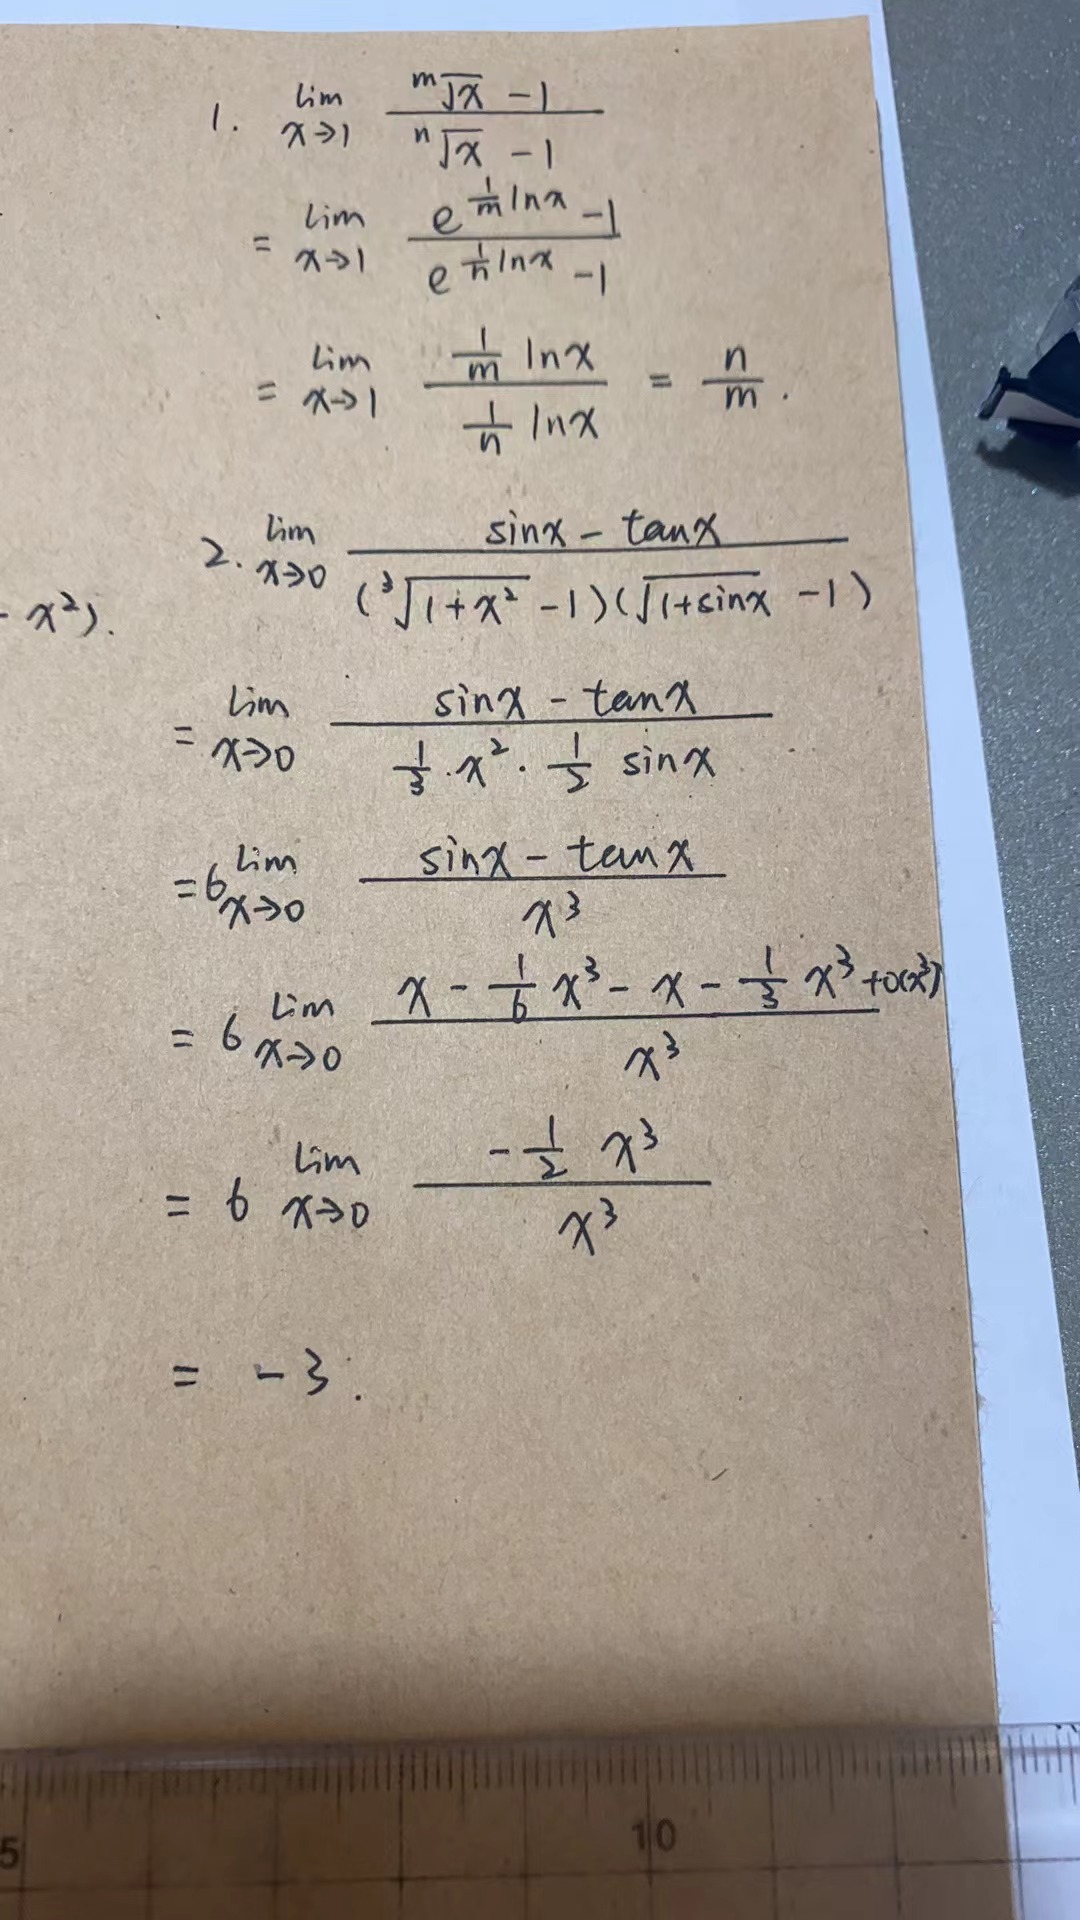 1. lim x→1 (ᵐ√x - 1) / (ⁿ√x - 1)
= lim x→1 (e^(1/m lnx) - 1) / (e^(1/n lnx) - 1)
= lim x→1 (1/m lnx) / (1/n lnx) = n/m.
2. lim x→0 (sinx - tanx) / ((³√(1+x²) - 1)(√(1+sinx) - 1))
- x²).
= lim x→0 (sinx - tanx) / (1/3 · x² · 1/2 sinx)
= 6 lim x→0 (sinx - tanx) / x³
= 6 lim x→0 (x - 1/6 x³ - x - 1/3 x³ + o(x³)) / x³
= 6 lim x→0 (-1/2 x³) / x³
= -3.
5 10